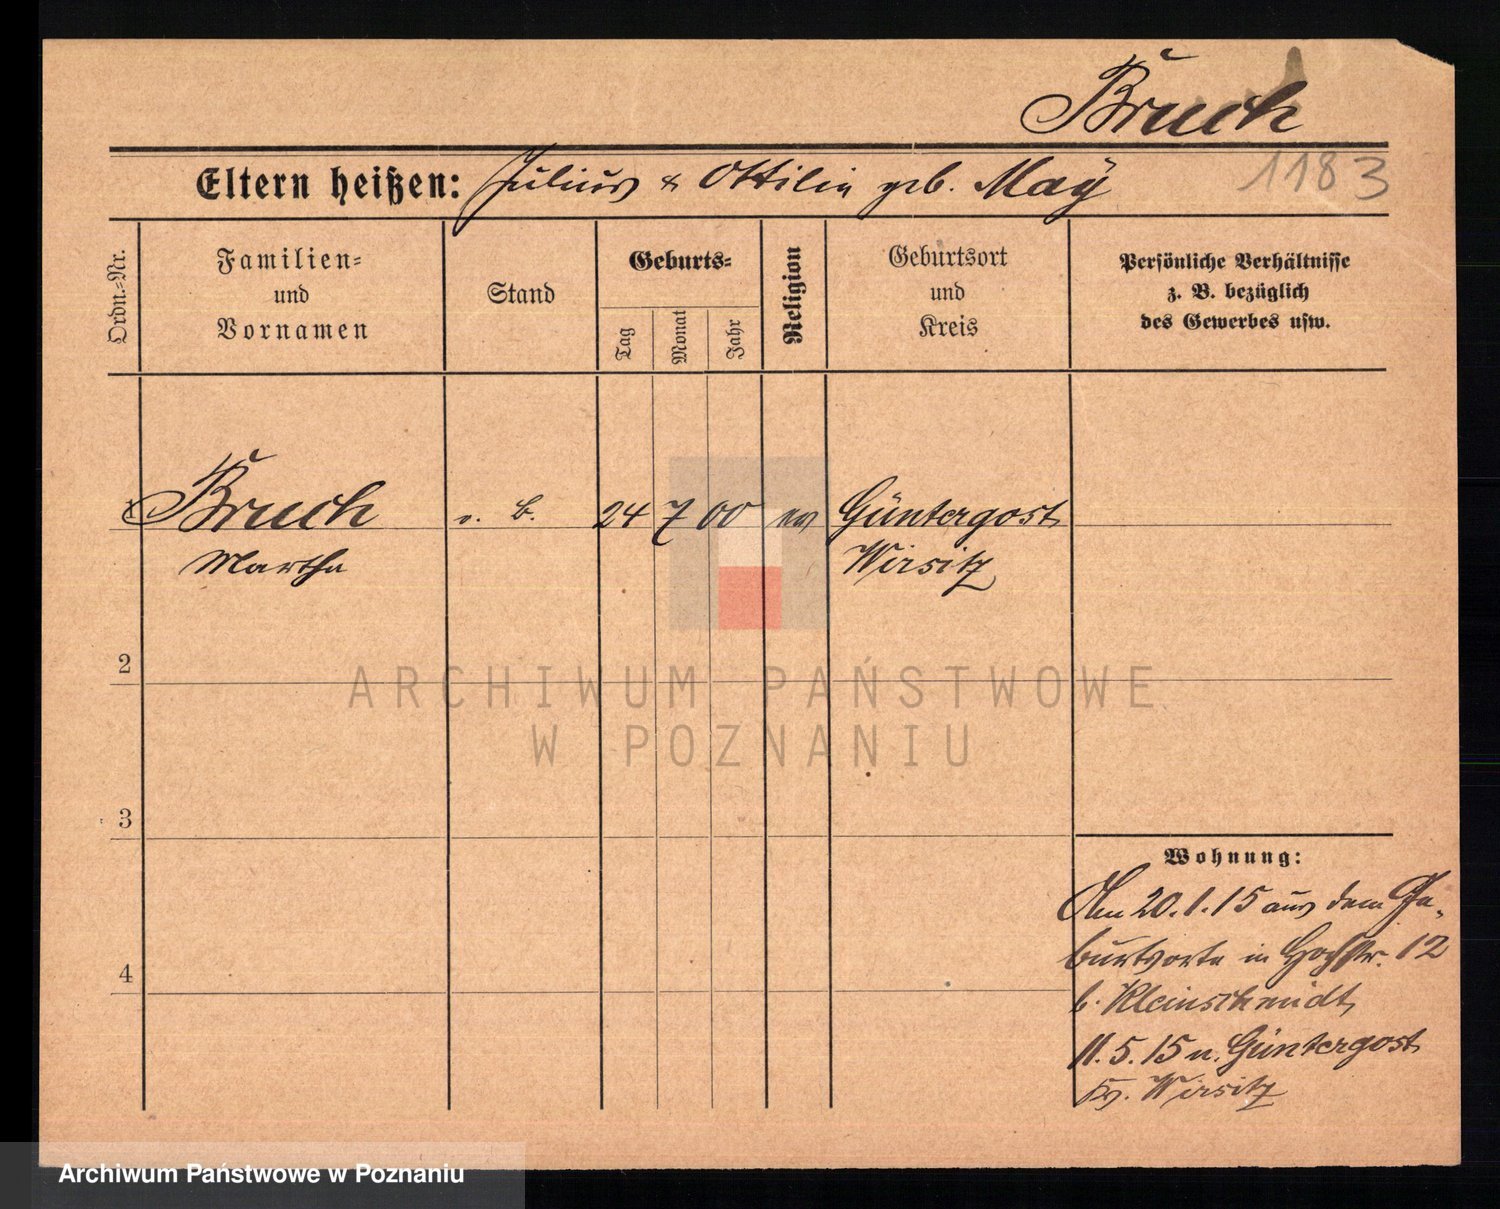 Bruch
Eltern heißen: Julius & Ottilie geb. Maÿ
1183
Ordn.-Nr.
Familien-
und
Vornamen
Stand
Geburts-
Tag
Monat
Jahr
Religion
Geburtsort
und
Kreis
Persönliche Verhältnisse
z. B. bezüglich
des Gewerbes usw.
1 Bruch o. B. 24 7 00 ev Güntergost
Martha Wirsitz
2
ARCHIWUM PAŃSTWOWE
W POZNANIU
3
Wohnung:
Am 20.1.15 aus dem Ge-
burtsorte in Hoffstr. 12
b. Kleinschmidt,
4
11.5.15 n. Güntergost
Kr. Wirsitz
Archiwum Państwowe w Poznaniu